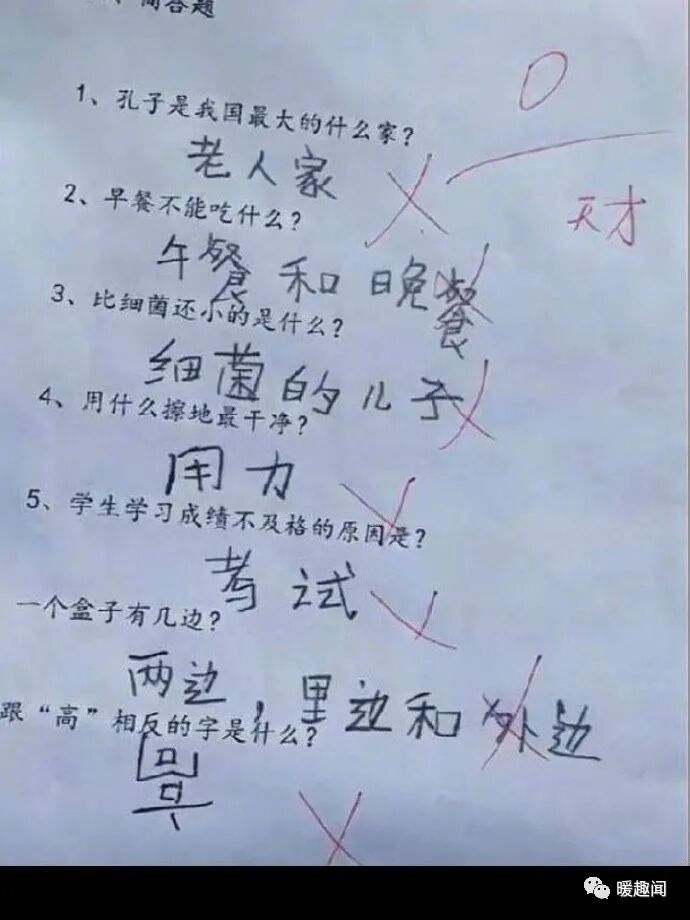 简答题
0
1、孔子是我国最大的什么家？
老人家
天才
2、早餐不能吃什么？
午餐和晚餐
3、比细菌还小的是什么？
细菌的儿子
4、用什么擦地最干净？
用力
5、学生学习成绩不及格的原因是？
考试
一个盒子有几边？
两边，里边和外边
跟“高”相反的字是什么？
暖趣闻